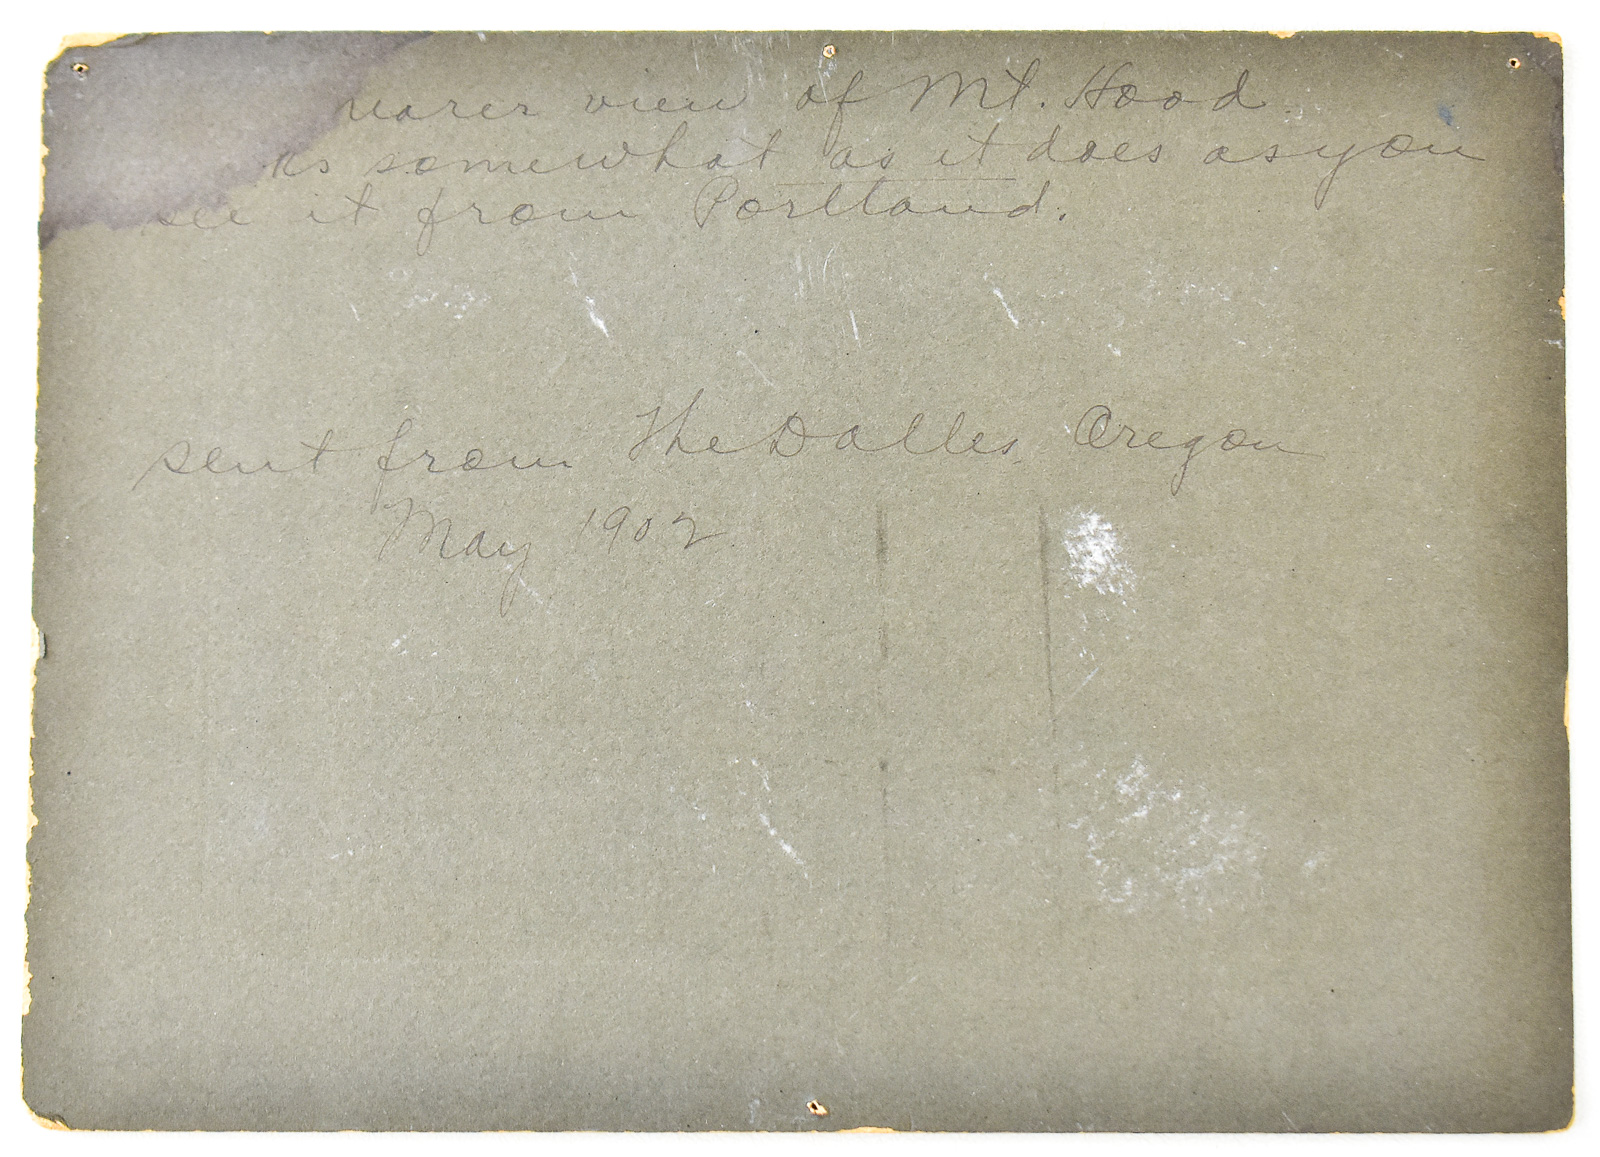 nearer view of Mt. Hood
ks somewhat as it does as you
see it from Portland.
sent from The Dalles, Oregon
May 1902